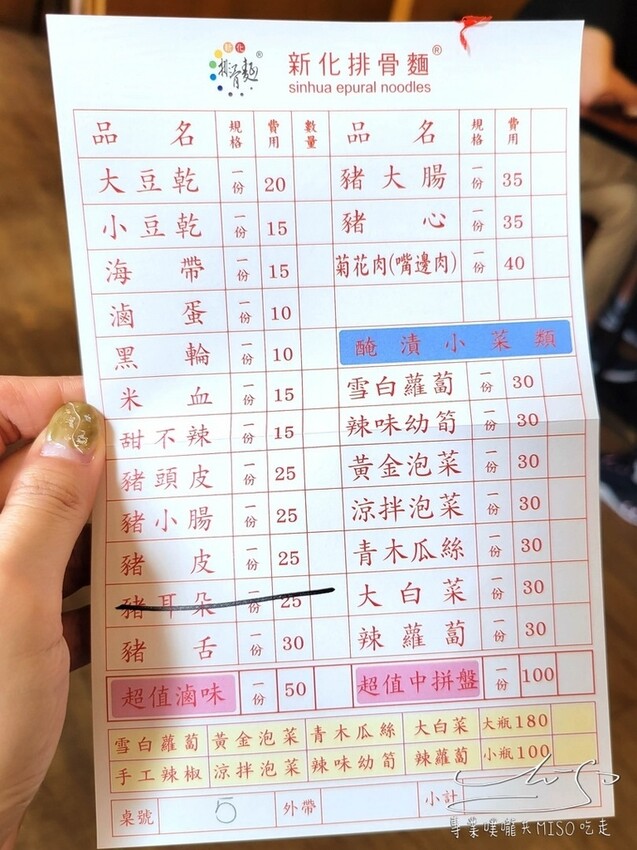 新化
排骨麵®
新化排骨麵®
sinhua epural noodles
品名 規格 費用 數量 品名 規格 費用
大豆乾 一份 20 豬大腸 一份 35
小豆乾 一份 15 豬心 一份 35
海帶 一份 15 菊花肉(嘴邊肉) 一份 40
滷蛋 一份 10
黑輪 一份 10 醃漬小菜類
米血 一份 15 雪白蘿蔔 一份 30
甜不辣 一份 15 辣味幼筍 一份 30
豬頭皮 一份 25 黃金泡菜 一份 30
豬小腸 一份 25 涼拌泡菜 一份 30
豬皮 一份 25 青木瓜絲 一份 30
豬耳朵 一份 25 大白菜 一份 30
豬舌 一份 30 辣蘿蔔 一份 30
超值滷味 一份 50 超值中拼盤 一份 100
雪白蘿蔔 黃金泡菜 青木瓜絲 大白菜 大瓶180
手工辣椒 涼拌泡菜 辣味幼筍 辣蘿蔔 小瓶100
桌號 5 外帶 小計
專業噗嚨共MISO吃走